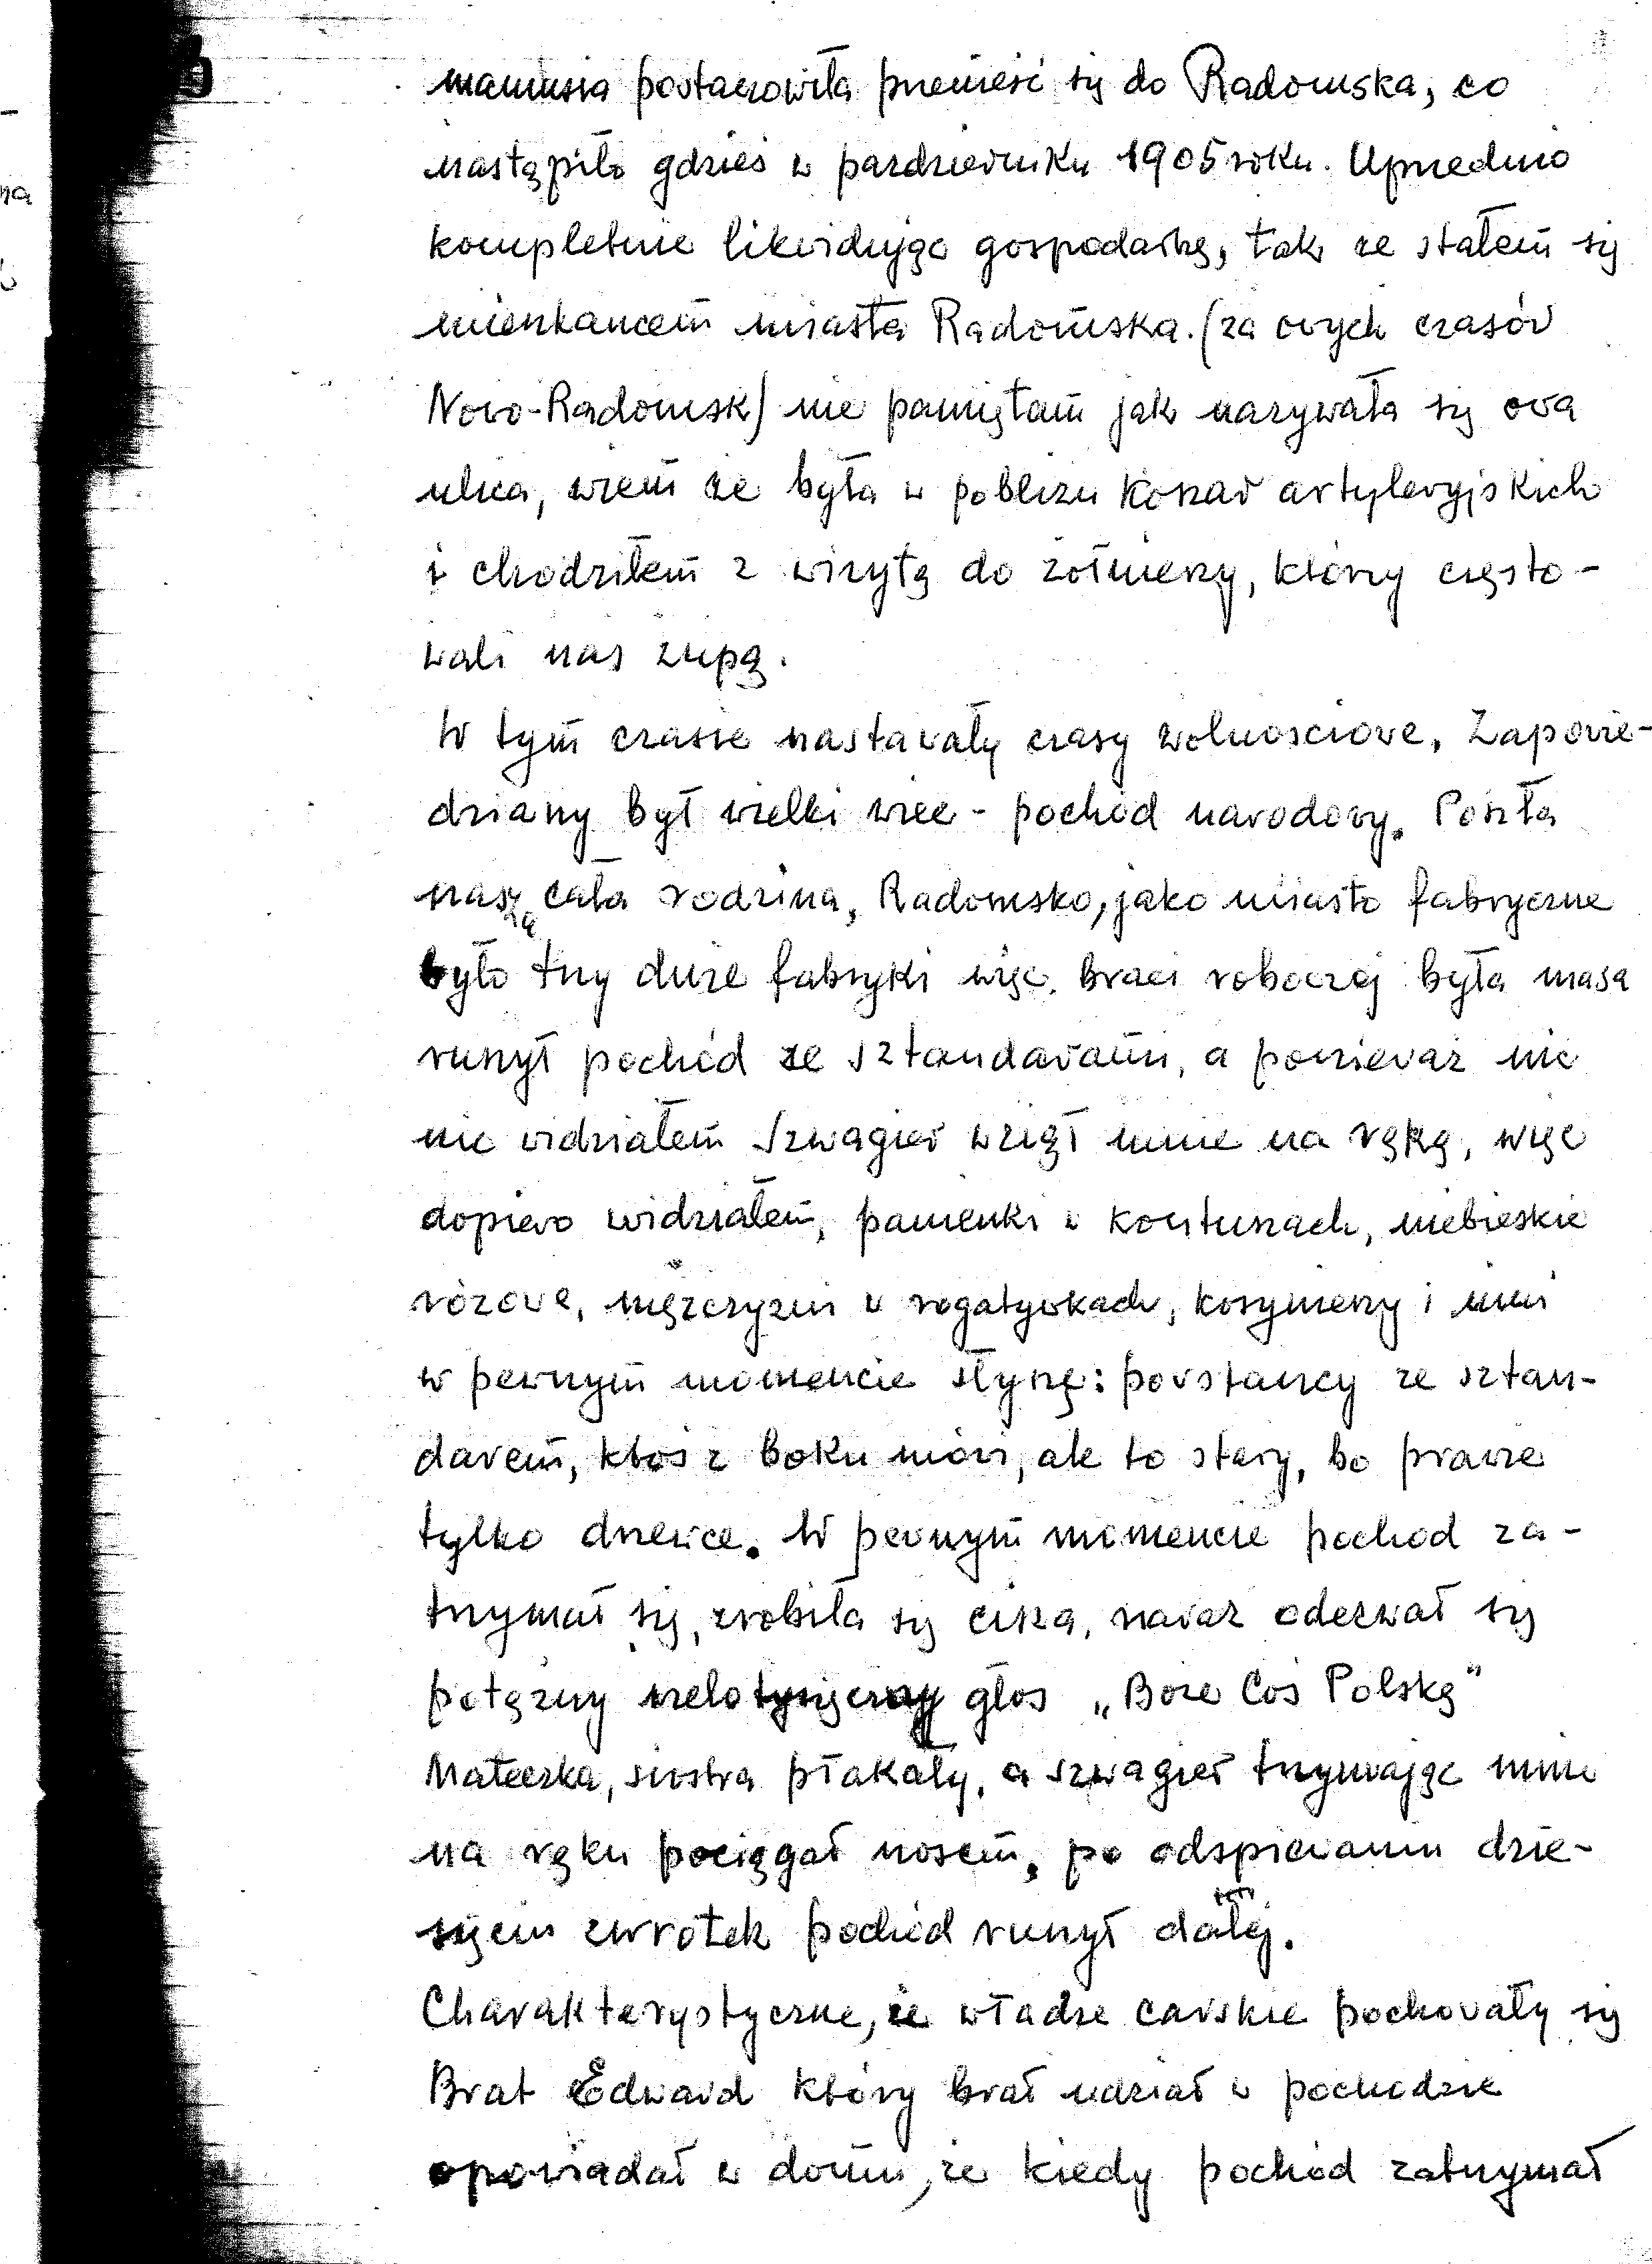 mamusia postanowiła przenieść się do Radomska, co
nastąpiło gdzieś w pazdzierniku 1905 roku. Uprzednio
kompletnie likwidując gospodarkę, tak ze stałem się
mieszkancem miasta Radomska. (za owych czasów
Nowo-Radomsk) nie pamiętam jak nazywała się owa
ulica, wiem że była w poblizu Koszar artyleryjskich
i chodziłem z wizytą do żołnierzy, którzy często-
wali nas zupą.
W tym czasie nastawały czasy wolnosciowe. Zapowie-
dziany był wielki wiec - pochód narodowy. Poszła
nasza cała rodzina, Radomsko, jako miasto fabryczne
było trzy duze fabryki więc braci roboczej była masa
ruszył pochód ze sztandarami, a ponieważ nic
nie widziałem Szwagier wziął mnie na rękę, więc
dopiero widziałem, panienki w kontuszach, niebieskie
rózowe, męzczyzni w rogatywkach, kosynierzy i inni
w pewnym momencie słyszę: powstancy ze sztan-
darem, ktoś z boku mówi, ale to starzy, bo prawie
tylko drzewce. W pewnym momencie pochod za-
trzymał się, zrobiła się cisza, naraz odezwał się
potęzny wielotysięczny głos „Boze Coś Polskę"
Mateczka, siostra płakały, a szwagier trzymając mnie
na ręku pociągał nosem, po odspiewaniu dzie-
sięciu zwrotek pochód ruszył dalej.
Charakterystyczne, że władze carskie pochowały się
Brat Edward który brał udział w pochodzie
opowiadał w domu, ze kiedy pochód zatrzymał